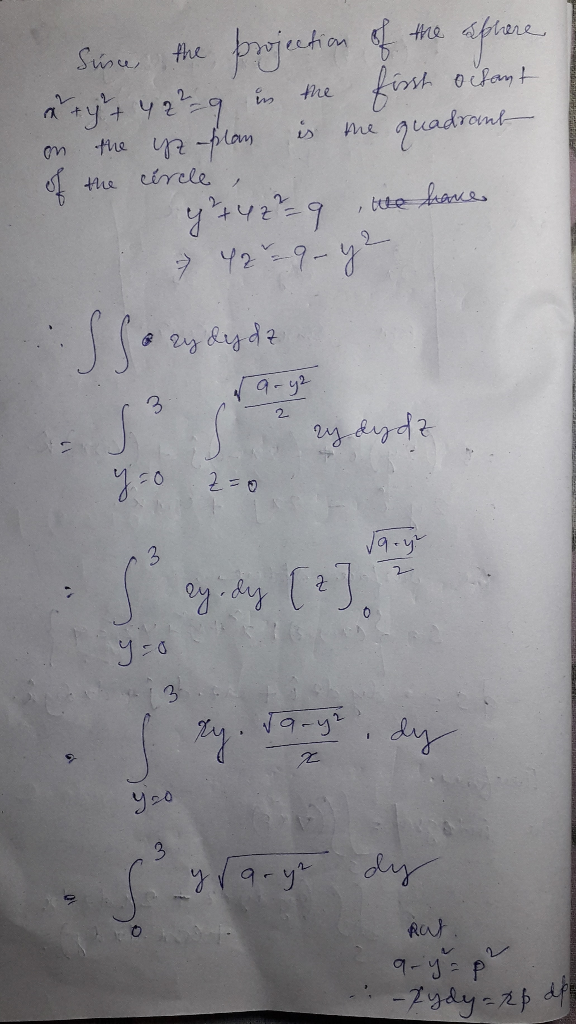 Since the projection of the sphere
x²+y²+4z²=9 in the first octant
on the yz-plan is the quadrant
of the circle,
y²+4z²=9 , we have
⇒ 4z²=9-y²
∴ ∫∫ 2y dy dz
= ∫_{y=0}^{3} ∫_{z=0}^{√(9-y²)/2} 2y dy dz
= ∫_{y=0}^{3} 2y·dy [z]_0^{√(9-y²)/2}
= ∫_{y=0}^{3} 2y·√(9-y²)/2 · dy
= ∫_0^3 y√(9-y²) dy
Put
9-y²=p²
∴ -2ydy=2p dp